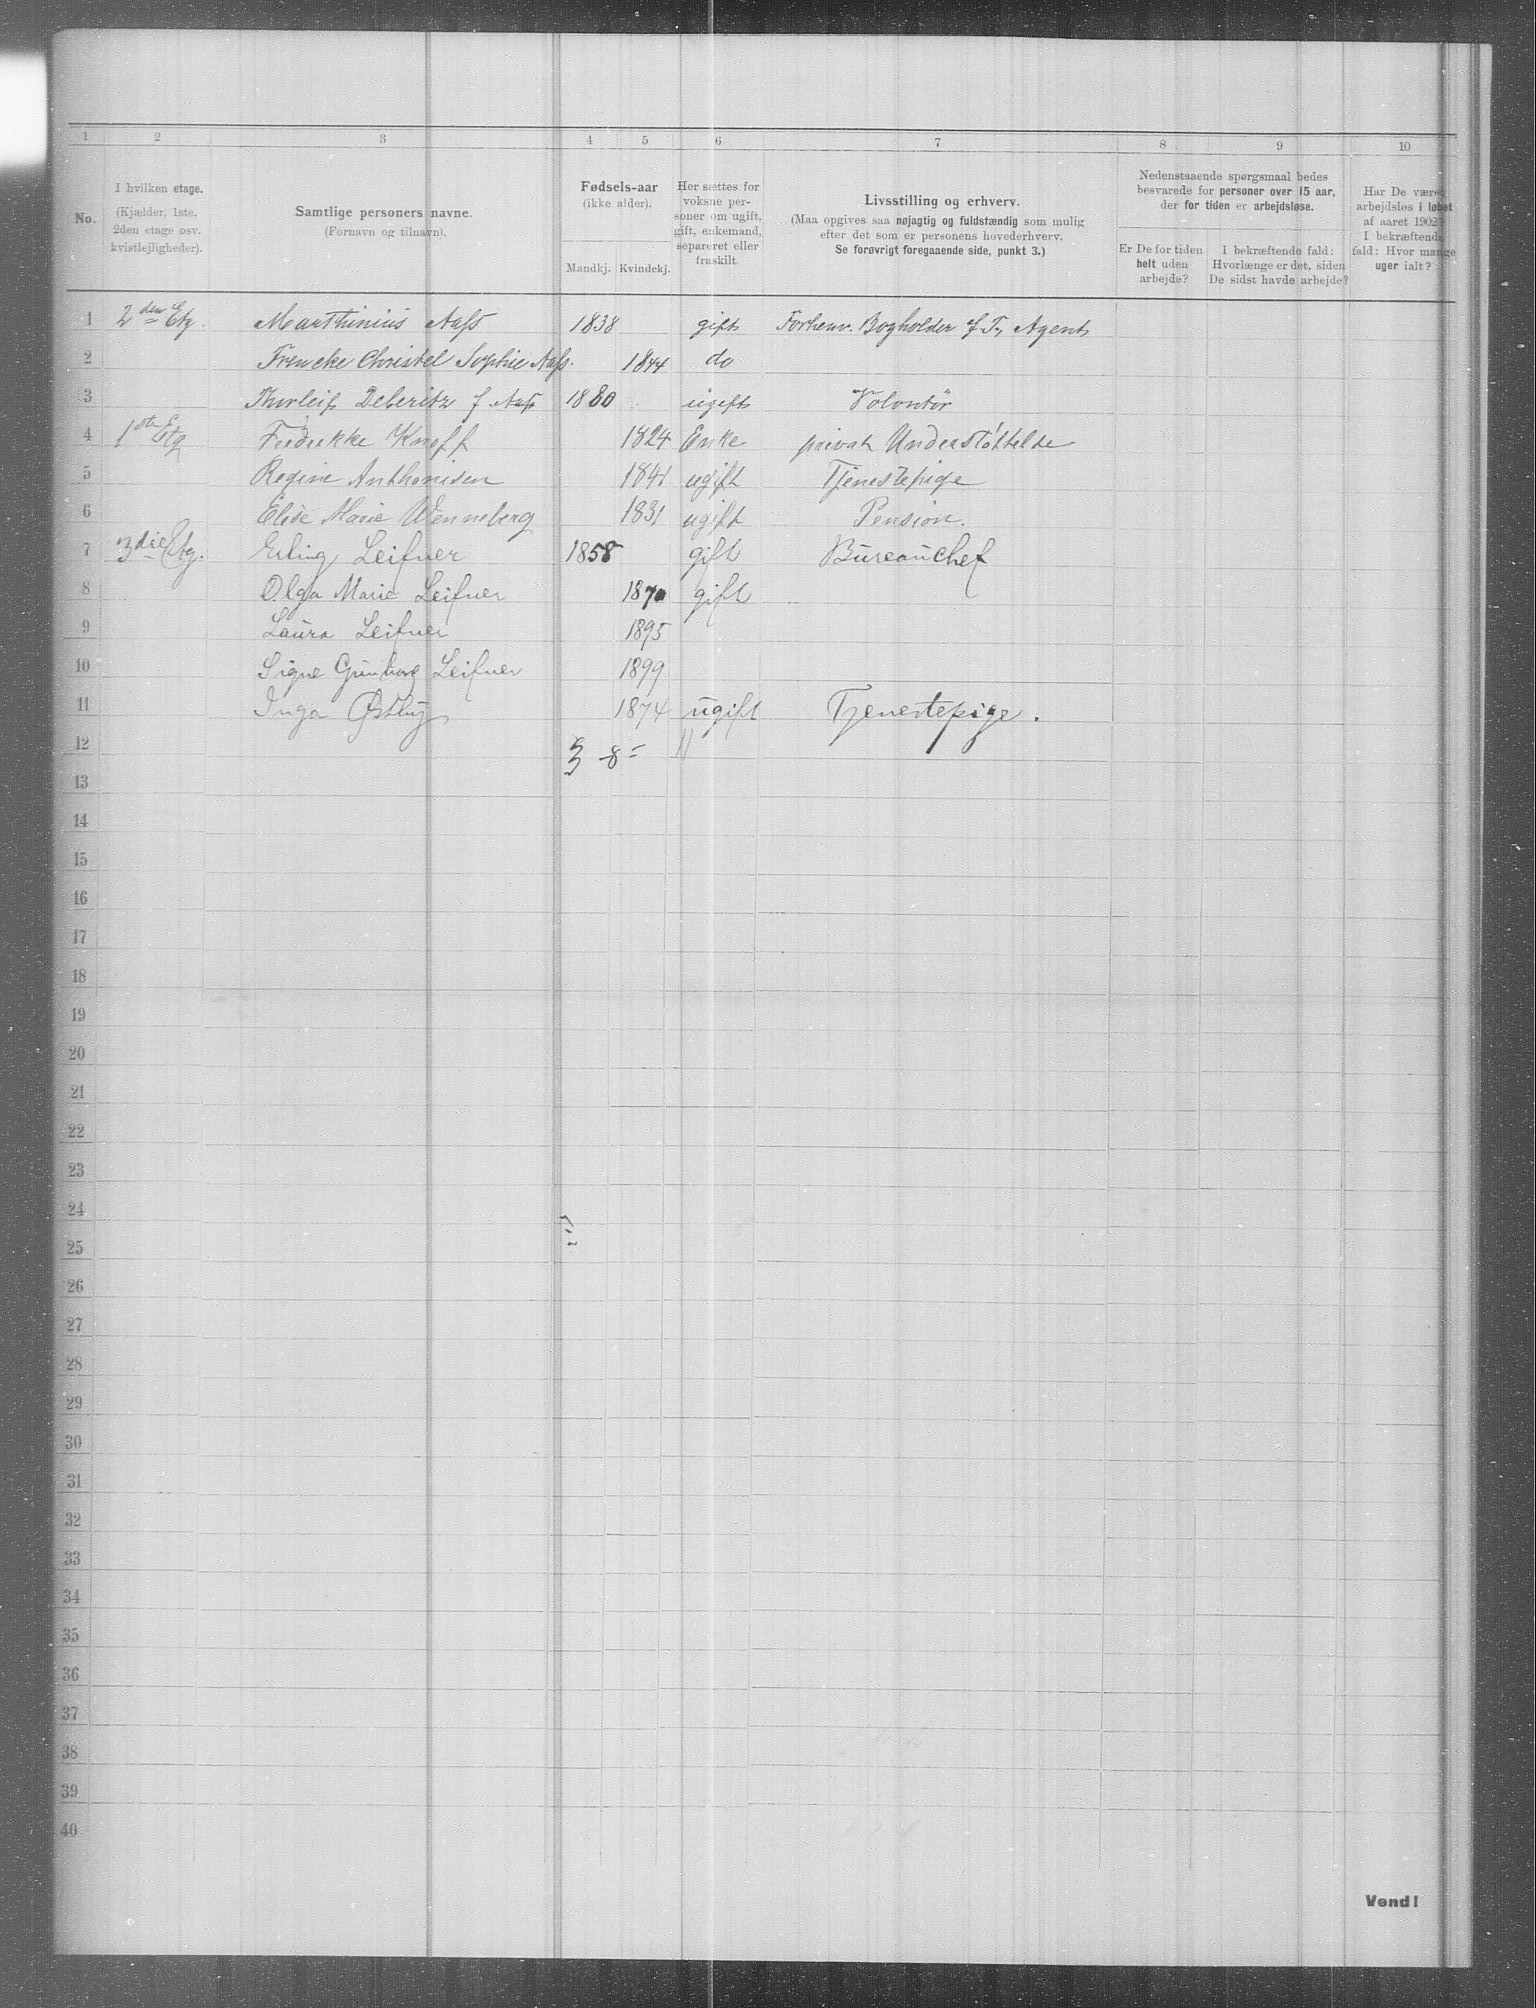 1 2 3 4 5 6 7 8 9 10
No.
I hvilken etage.
(Kjælder, 1ste,
2den etage osv.
kvistlejligheder).
Samtlige personers navne.
(Fornavn og tilnavn).
Fødsels-aar
(ikke alder).
Mandkj. Kvindekj.
Her sættes for
voksne per-
soner om ugift,
gift, enkemand,
separeret eller
fraskilt.
Livsstilling og erhverv.
(Maa opgives saa nøjagtig og fuldstændig som mulig
efter det som er personens hovederhverv.
Se forøvrigt foregaaende side, punkt 3.)
Nedenstaaende spørgsmaal bedes
besvarede for personer over 15 aar,
der for tiden er arbejdsløse.
Er De for tiden
helt uden
arbejde?
I bekræftende fald:
Hvorlænge er det, siden
De sidst havde arbejde?
Har De været
arbejdsløs i løbet
af aaret 1902?
I bekræftende
fald: Hvor mange
uger ialt?
1 2den Etg. Marthinius Aass 1838 gift Forhenv. Bogholder f. T. Agent
2 Frencke Christel Sophie Aass. 1844 do
3 Thorleif Deberitz f Aass 1880 ugift Volontør
4 1ste Etg Fredrikke Knoff 1824 Enke privat Understøttelse
5 Regine Anthonisen 1841 ugift Tjenestepige
6 Elise Marie Wenneberg 1831 ugift Pension.
7 3die Etg. Erling Leifner 1858 gift Bureauchef
8 Olga Marie Leifner 1870 gift
9 Laura Leifner 1895
10 Signe Gunborg Leifner 1899
11 Inga Østby 1874 ugift Tjenestepige.
12 3 8 = 11
13
14
15
16
17
18
19
20
21
22
23
24
25
26
27
28
29
30
31
32
33
34
35
36
37
38
39
40
Vend!